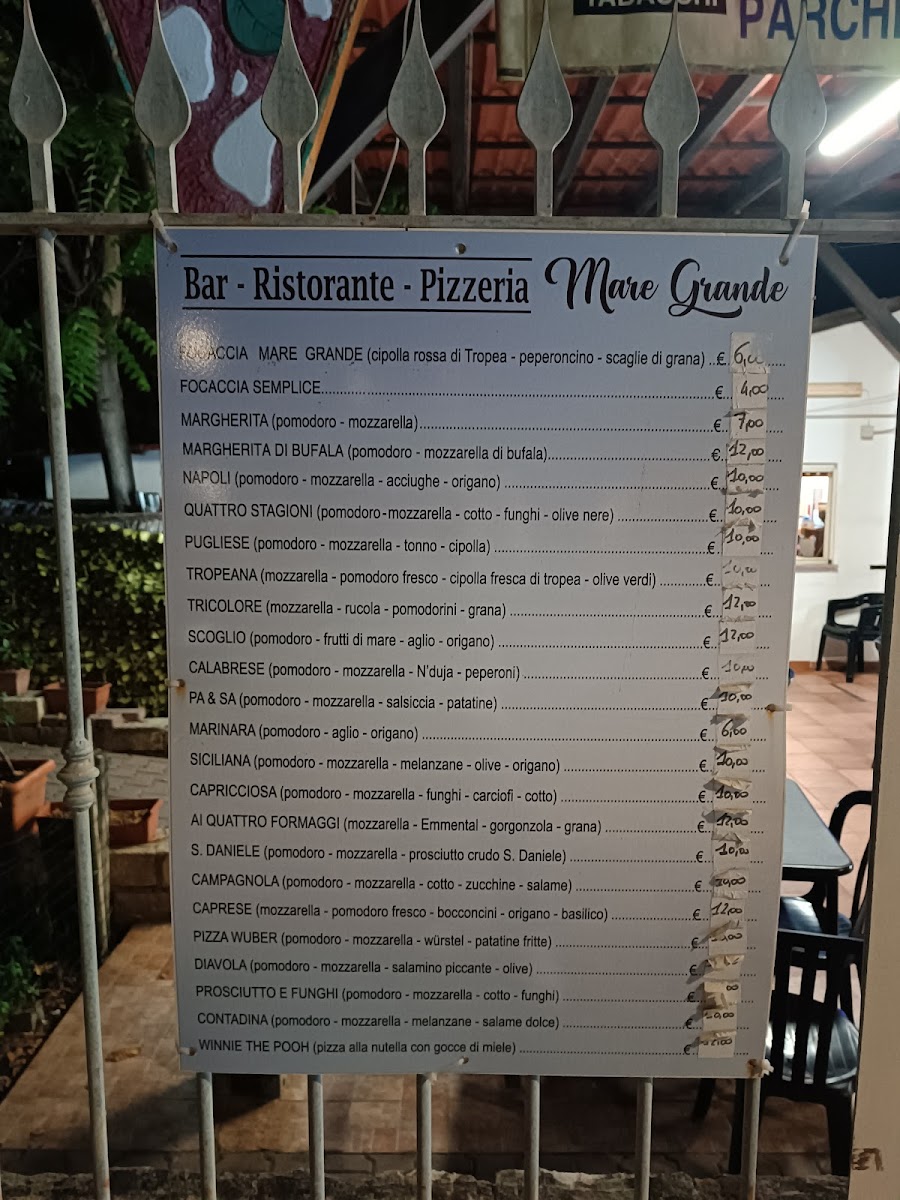 TABACCHI
Bar - Ristorante - Pizzeria Mare Grande
FOCACCIA MARE GRANDE (cipolla rossa di Tropea - peperoncino - scaglie di grana) ..€. 6,00
FOCACCIA SEMPLICE....€. 4,00
MARGHERITA (pomodoro - mozzarella)....€. 7,00
MARGHERITA DI BUFALA (pomodoro - mozzarella di bufala)....€. 12,00
NAPOLI (pomodoro - mozzarella - acciughe - origano) ....€. 10,00
QUATTRO STAGIONI (pomodoro-mozzarella - cotto - funghi - olive nere) ....€. 10,00
PUGLIESE (pomodoro - mozzarella - tonno - cipolla) ....€. 10,00
TROPEANA (mozzarella - pomodoro fresco - cipolla fresca di tropea - olive verdi) ....€. 10,00
TRICOLORE (mozzarella - rucola - pomodorini - grana) ....€. 12,00
SCOGLIO (pomodoro - frutti di mare - aglio - origano) ....€. 12,00
CALABRESE (pomodoro - mozzarella - N'duja - peperoni) ....€. 10,00
PA & SA (pomodoro - mozzarella - salsiccia - patatine) ....€. 10,00
MARINARA (pomodoro - aglio - origano) ....€. 6,00
SICILIANA (pomodoro - mozzarella - melanzane - olive - origano) ....€. 10,00
CAPRICCIOSA (pomodoro - mozzarella - funghi - carciofi - cotto) ....€. 10,00
AI QUATTRO FORMAGGI (mozzarella - Emmental - gorgonzola - grana) ....€. 12,00
S. DANIELE (pomodoro - mozzarella - prosciutto crudo S. Daniele) ....€. 10,00
CAMPAGNOLA (pomodoro - mozzarella - cotto - zucchine - salame) ....€. 10,00
CAPRESE (mozzarella - pomodoro fresco - bocconcini - origano - basilico) ....€. 12,00
PIZZA WUBER (pomodoro - mozzarella - würstel - patatine fritte) ....€.
DIAVOLA (pomodoro - mozzarella - salamino piccante - olive) ....€.
PROSCIUTTO E FUNGHI (pomodoro - mozzarella - cotto - funghi) ....€.
CONTADINA (pomodoro - mozzarella - melanzane - salame dolce) ....€. 10,00
WINNIE THE POOH (pizza alla nutella con gocce di miele) ....€.